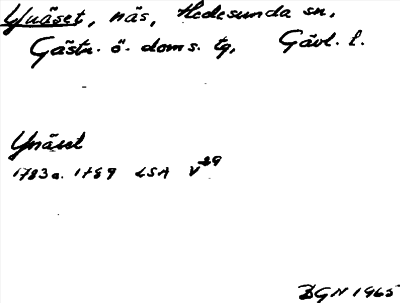 Ynäset, näs, Hedesunda sn,
Gästr. ö. doms. tg, Gävl. l.
Ynäset
1783 o. 1789 LSA V 29
BGN 1965